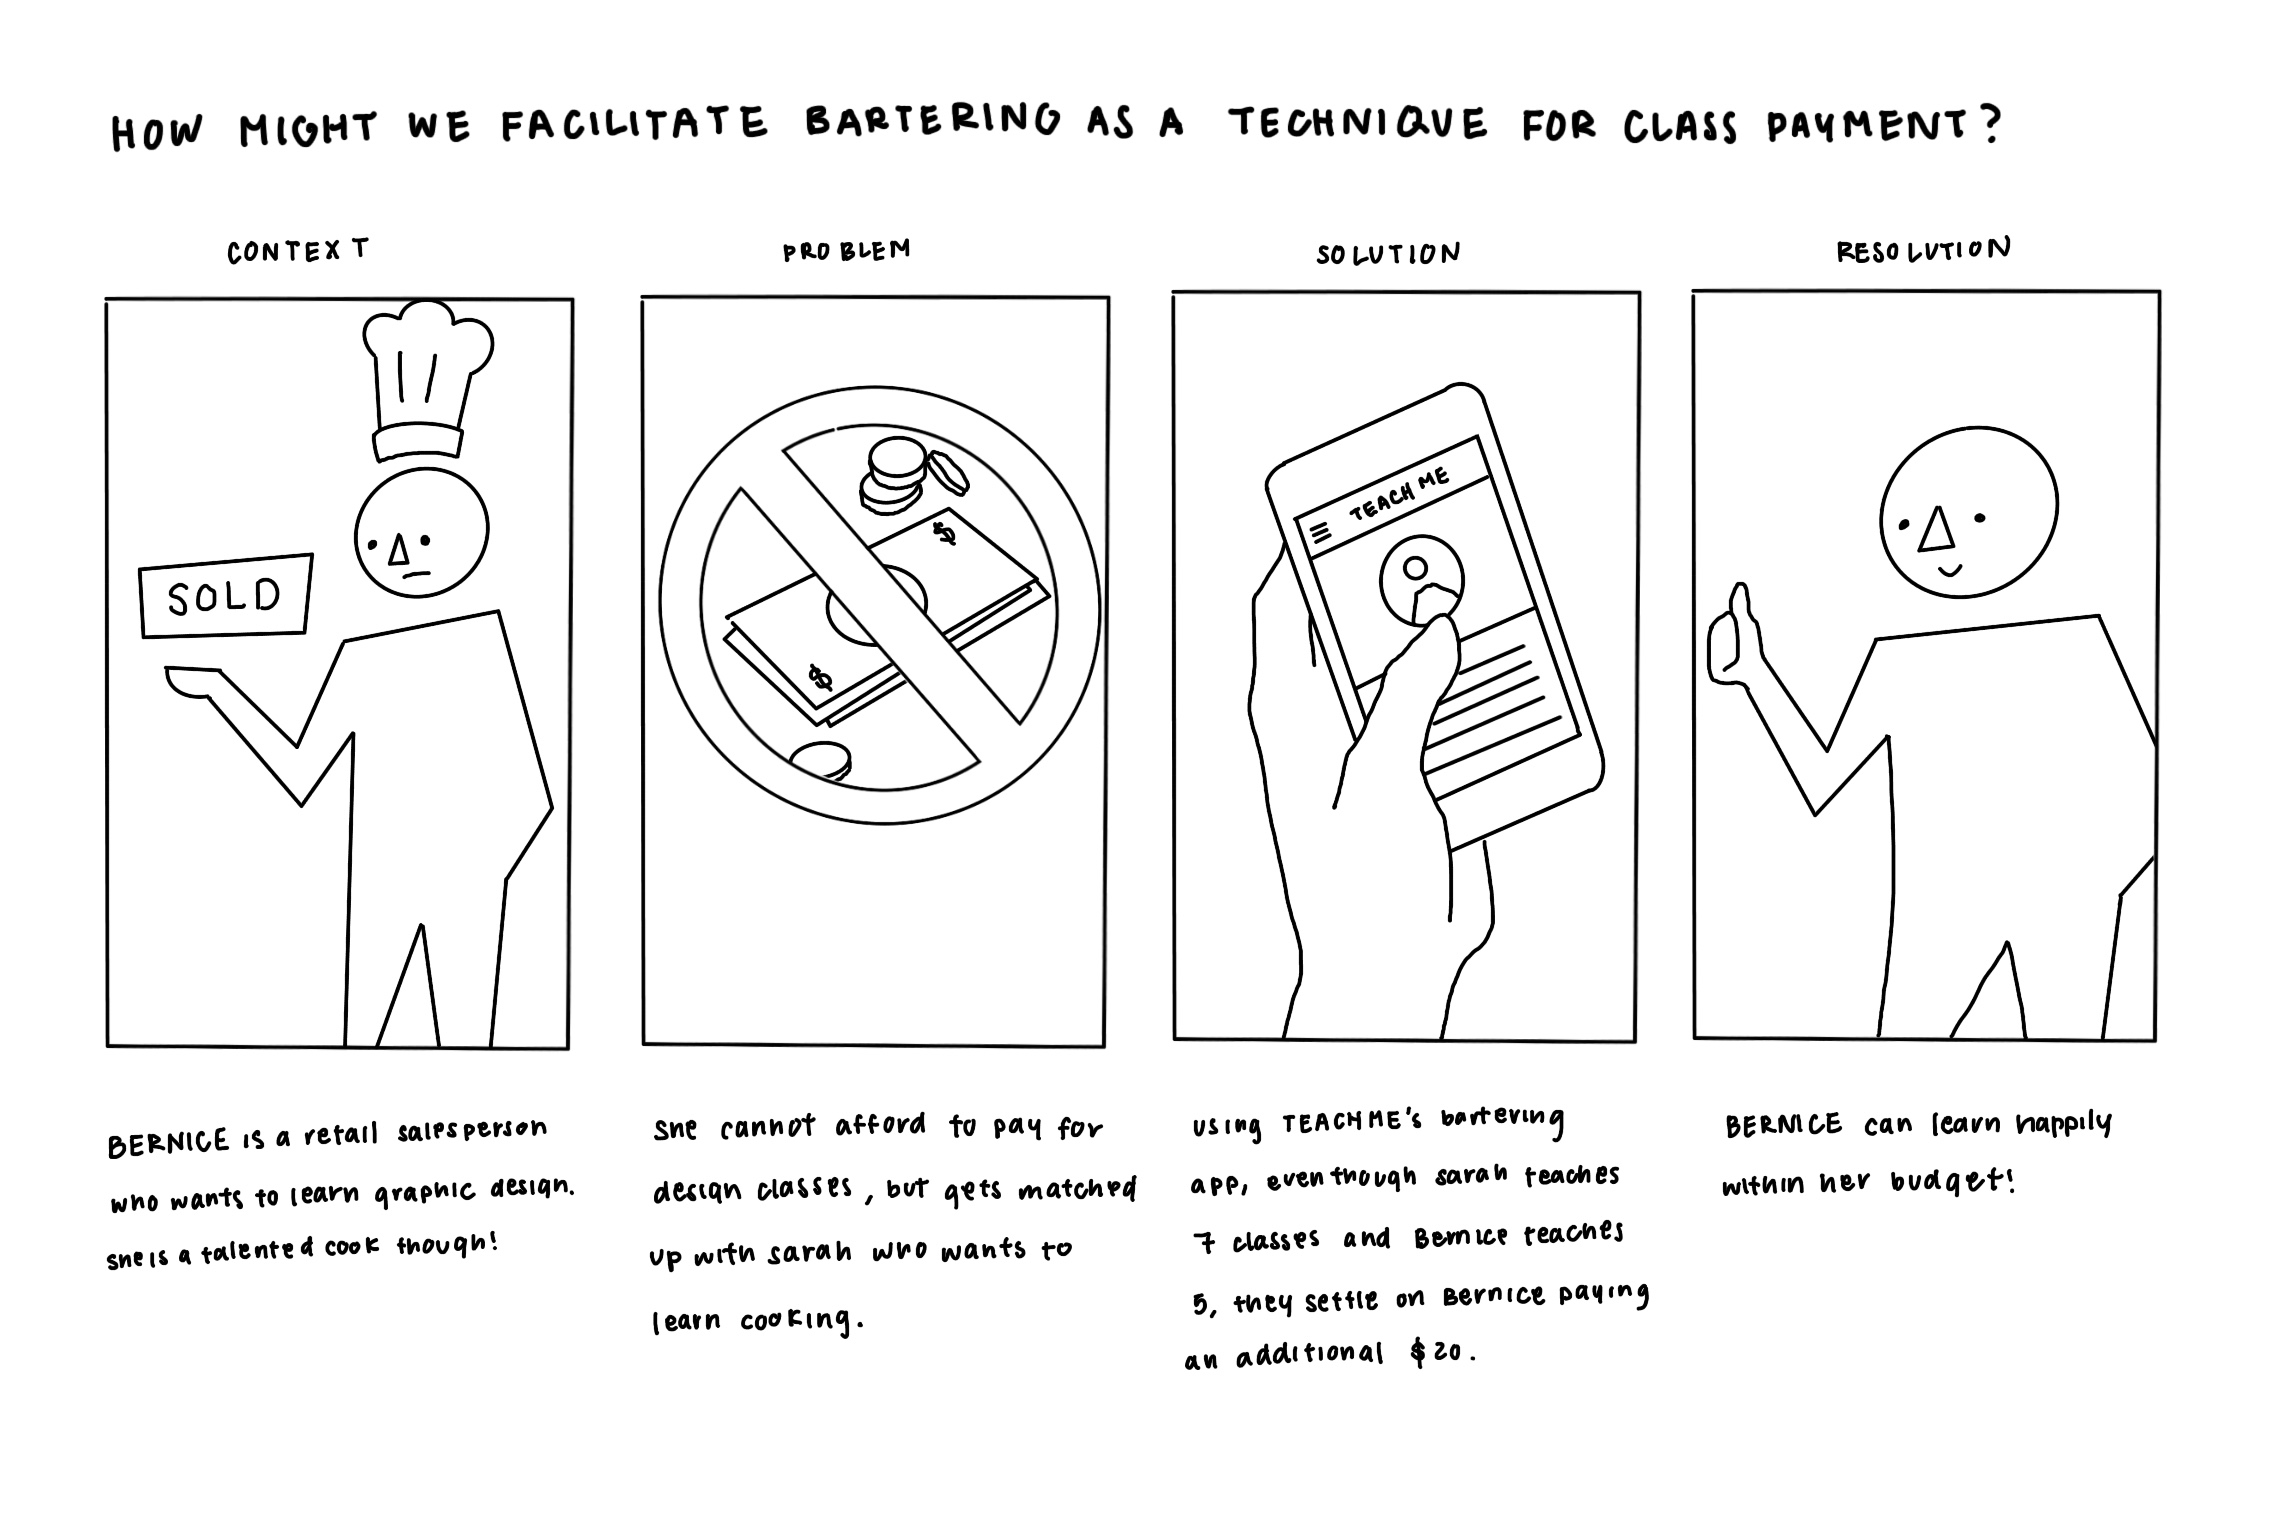 HOW MIGHT WE FACILITATE BARTERING AS A TECHNIQUE FOR CLASS PAYMENT?
CONTEXT
SOLD
BERNICE is a retail salesperson
who wants to learn graphic design.
she is a talented cook though!
PROBLEM
$
$
she cannot afford to pay for
design classes, but gets matched
up with sarah who wants to
learn cooking.
SOLUTION
TEACH ME
using TEACHME's bartering
app, even though sarah teaches
7 classes and Bernice teaches
5, they settle on Bernice paying
an additional $20.
RESOLUTION
BERNICE can learn happily
within her budget!